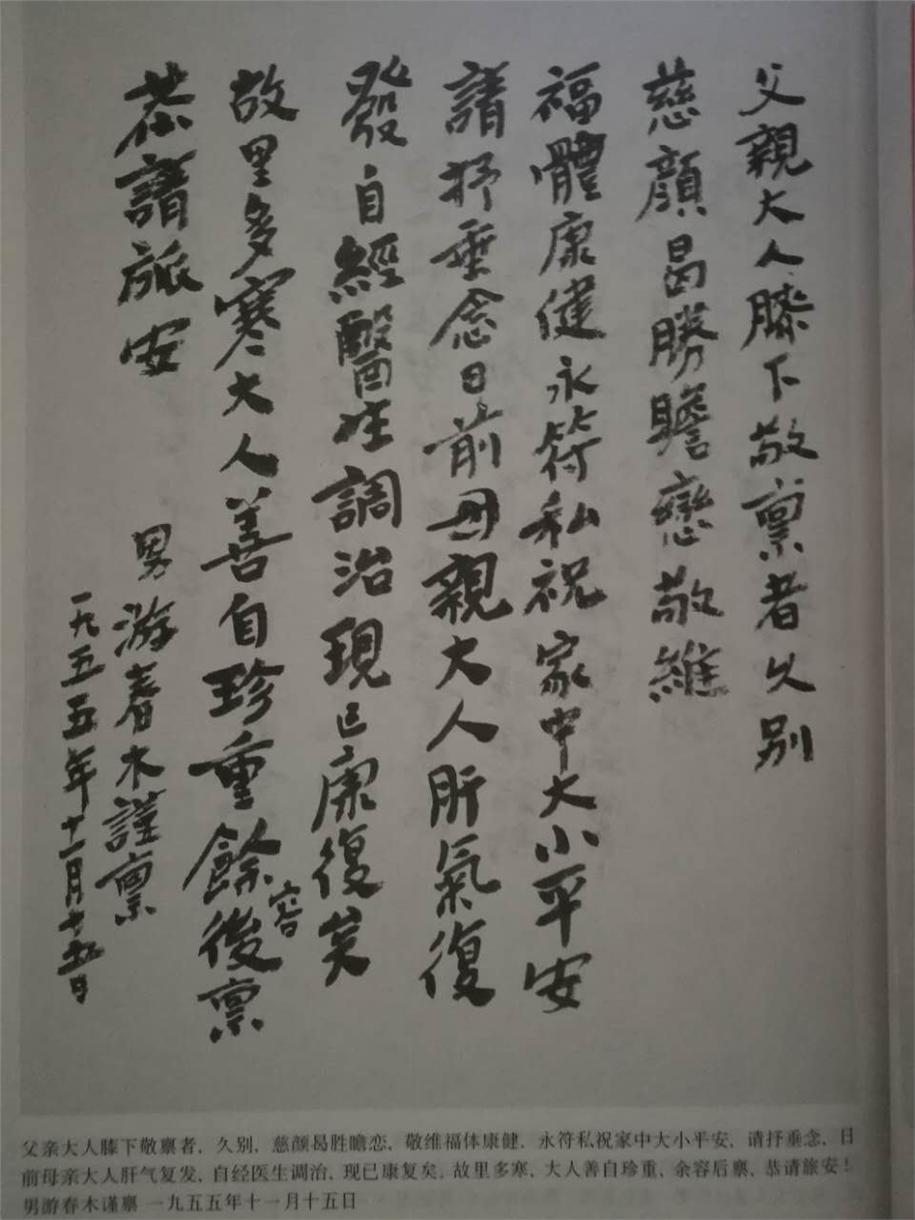 父親大人膝下敬禀者久别
慈顔曷勝瞻戀敬維
福體康健永符私祝家中大小平安
請抒垂念日前母親大人肝氣復
發自經醫生調治現已康復矣
故里多寒大人善自珍重餘容後禀
恭請旅安
男游春木謹禀
一九五五年十一月十五日
父亲大人膝下敬禀者，久别，慈颜曷胜瞻恋，敬维福体康健，永符私祝家中大小平安，请抒垂念，日
前母亲大人肝气复发，自经医生调治，现已康复矣，故里多寒，大人善自珍重，余容后禀，恭请旅安！
男游春木谨禀 一九五五年十一月十五日